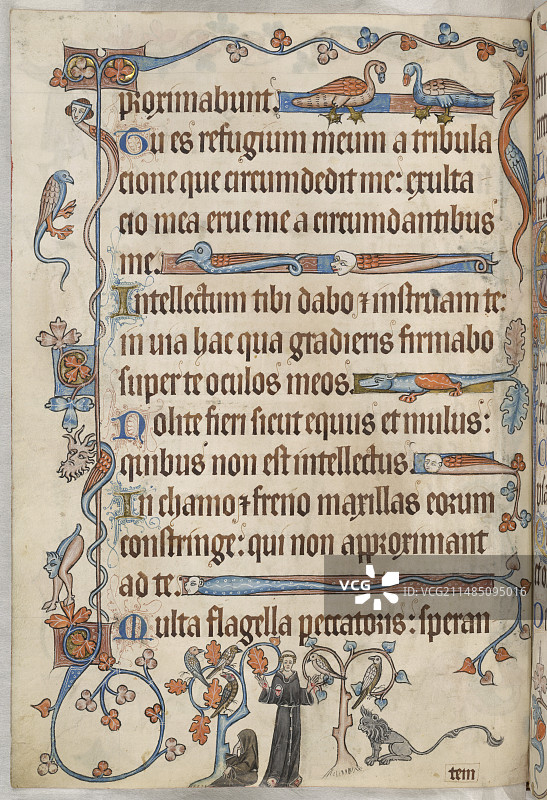 proximabunt.
Tu es refugium meum a tribula
cione que circumdedit me: exulta
cio mea erue me a circumdantibus
me.
Intellectum tibi dabo ⁊ instruam te:
in uia hac qua gradieris firmabo
super te oculos meos.
Nolite fieri sicut equus et mulus:
quibus non est intellectus.
In chamo ⁊ freno maxillas eorum
constringe: qui non approximant
ad te.
VCG
ID:VCG211485095016
Multa flagella peccatoris: speran
tem